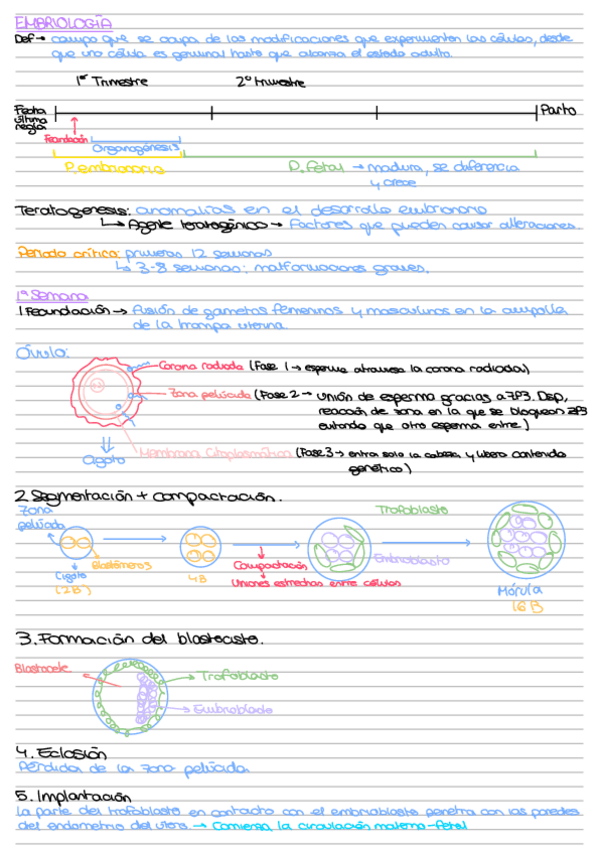 EMBRIOLOGÍA
Def → campo que se ocupa de las modificaciones que experimentan las células, desde
que una célula es germinal hasta que alcanza el estado adulto.
1er Trimestre 2º trimestre
Fecha última regla Parto
Fecundación
Organogénesis
P. embrionario D. Fetal → madura, se diferencia
y crece
Teratogenesis: anomalías en el desarrollo embrionario
↳ Agente teratogénico → Factores que pueden causar alteraciones.
Período crítico: primeras 12 semanas
↳ 3-8 semanas: malformaciones graves.
1ª Semana
1 Fecundación → Fusión de gametos femeninos y masculinos en la ampolla
de la trompa uterina.
Óvulo:
Corona radiada (Fase 1 → esperma atraviesa la corona radiada)
Zona pelúcida (Fase 2 → unión de esperma gracias a ZP3. Desp,
reacción de zona en la que se bloquean ZP3
evitando que otro esperma entre)
Membrana Citoplasmática (Fase 3 → entra solo la cabeza y libera contenido
genético)
Cigoto
2 Segmentación + compactación.
Zona
pelúcida
Trofoblasto
Blastómeros
Cigoto
(2B)
4B
Compactación
Uniones estrechas entre células
Embrioblasto
Mórula
16 B
3. Formación del blastocisto.
Blastocele
Trofoblasto
Embrioblasto
4. Eclosión
Pérdida de la zona pelúcida
5. Implantación
La parte del trofoblasto en contacto con el embrioblasto penetra con las paredes
del endometrio del útero. → Comienza la circulación materno-fetal